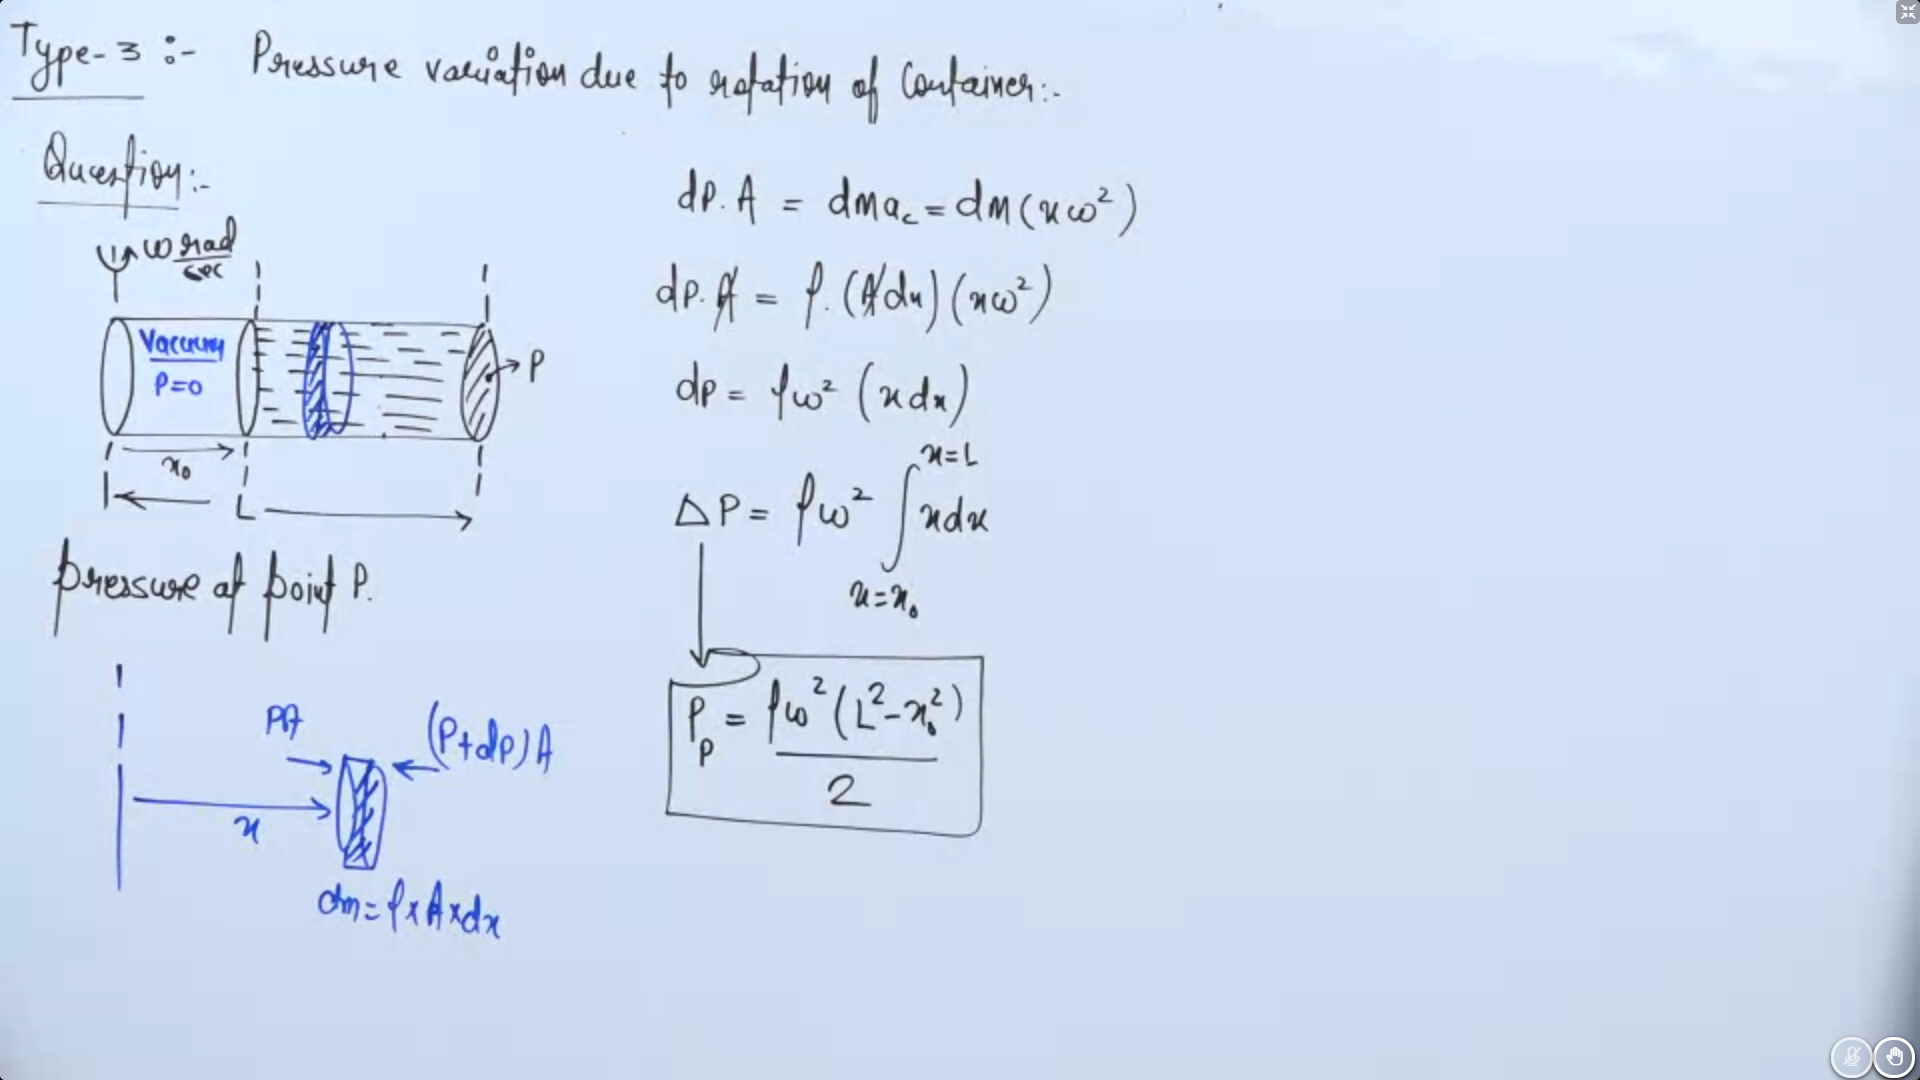 Type-3 :- Pressure variation due to rotation of Container:-
Question:-
ω rad/sec
Vacuum
P=0
P
x₀
L
pressure at point P.
PA
(P+dP)A
x
dm = ρ×A×dx
dP.A = dma_c = dm(xω²)
dP.A = ρ.(Adx)(xω²)
dP = ρω² (xdx)
x=L
ΔP = ρω² ∫xdx
x=x₀
P_P = ρω²(L²-x₀²)/2